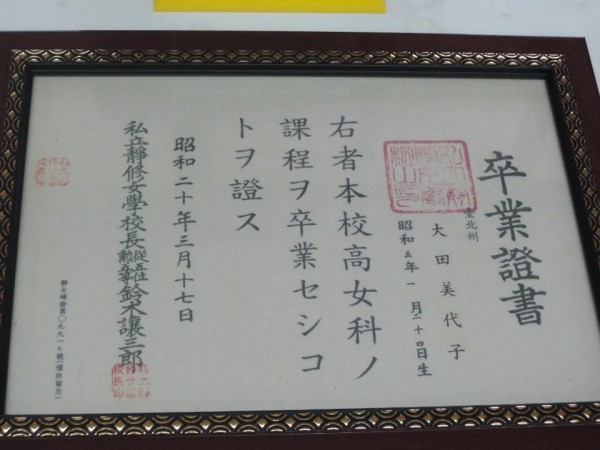 卒業證書
臺北州
大田美代子
昭和五年一月二十四日生
右者本校高女科ノ
課程ヲ卒業セシコ
トヲ證ス
昭和二十年三月十七日
私立靜修女學校長從五位勲五等鈴木讓三郎
靜女補發第〇九九一七號(僅供留念)